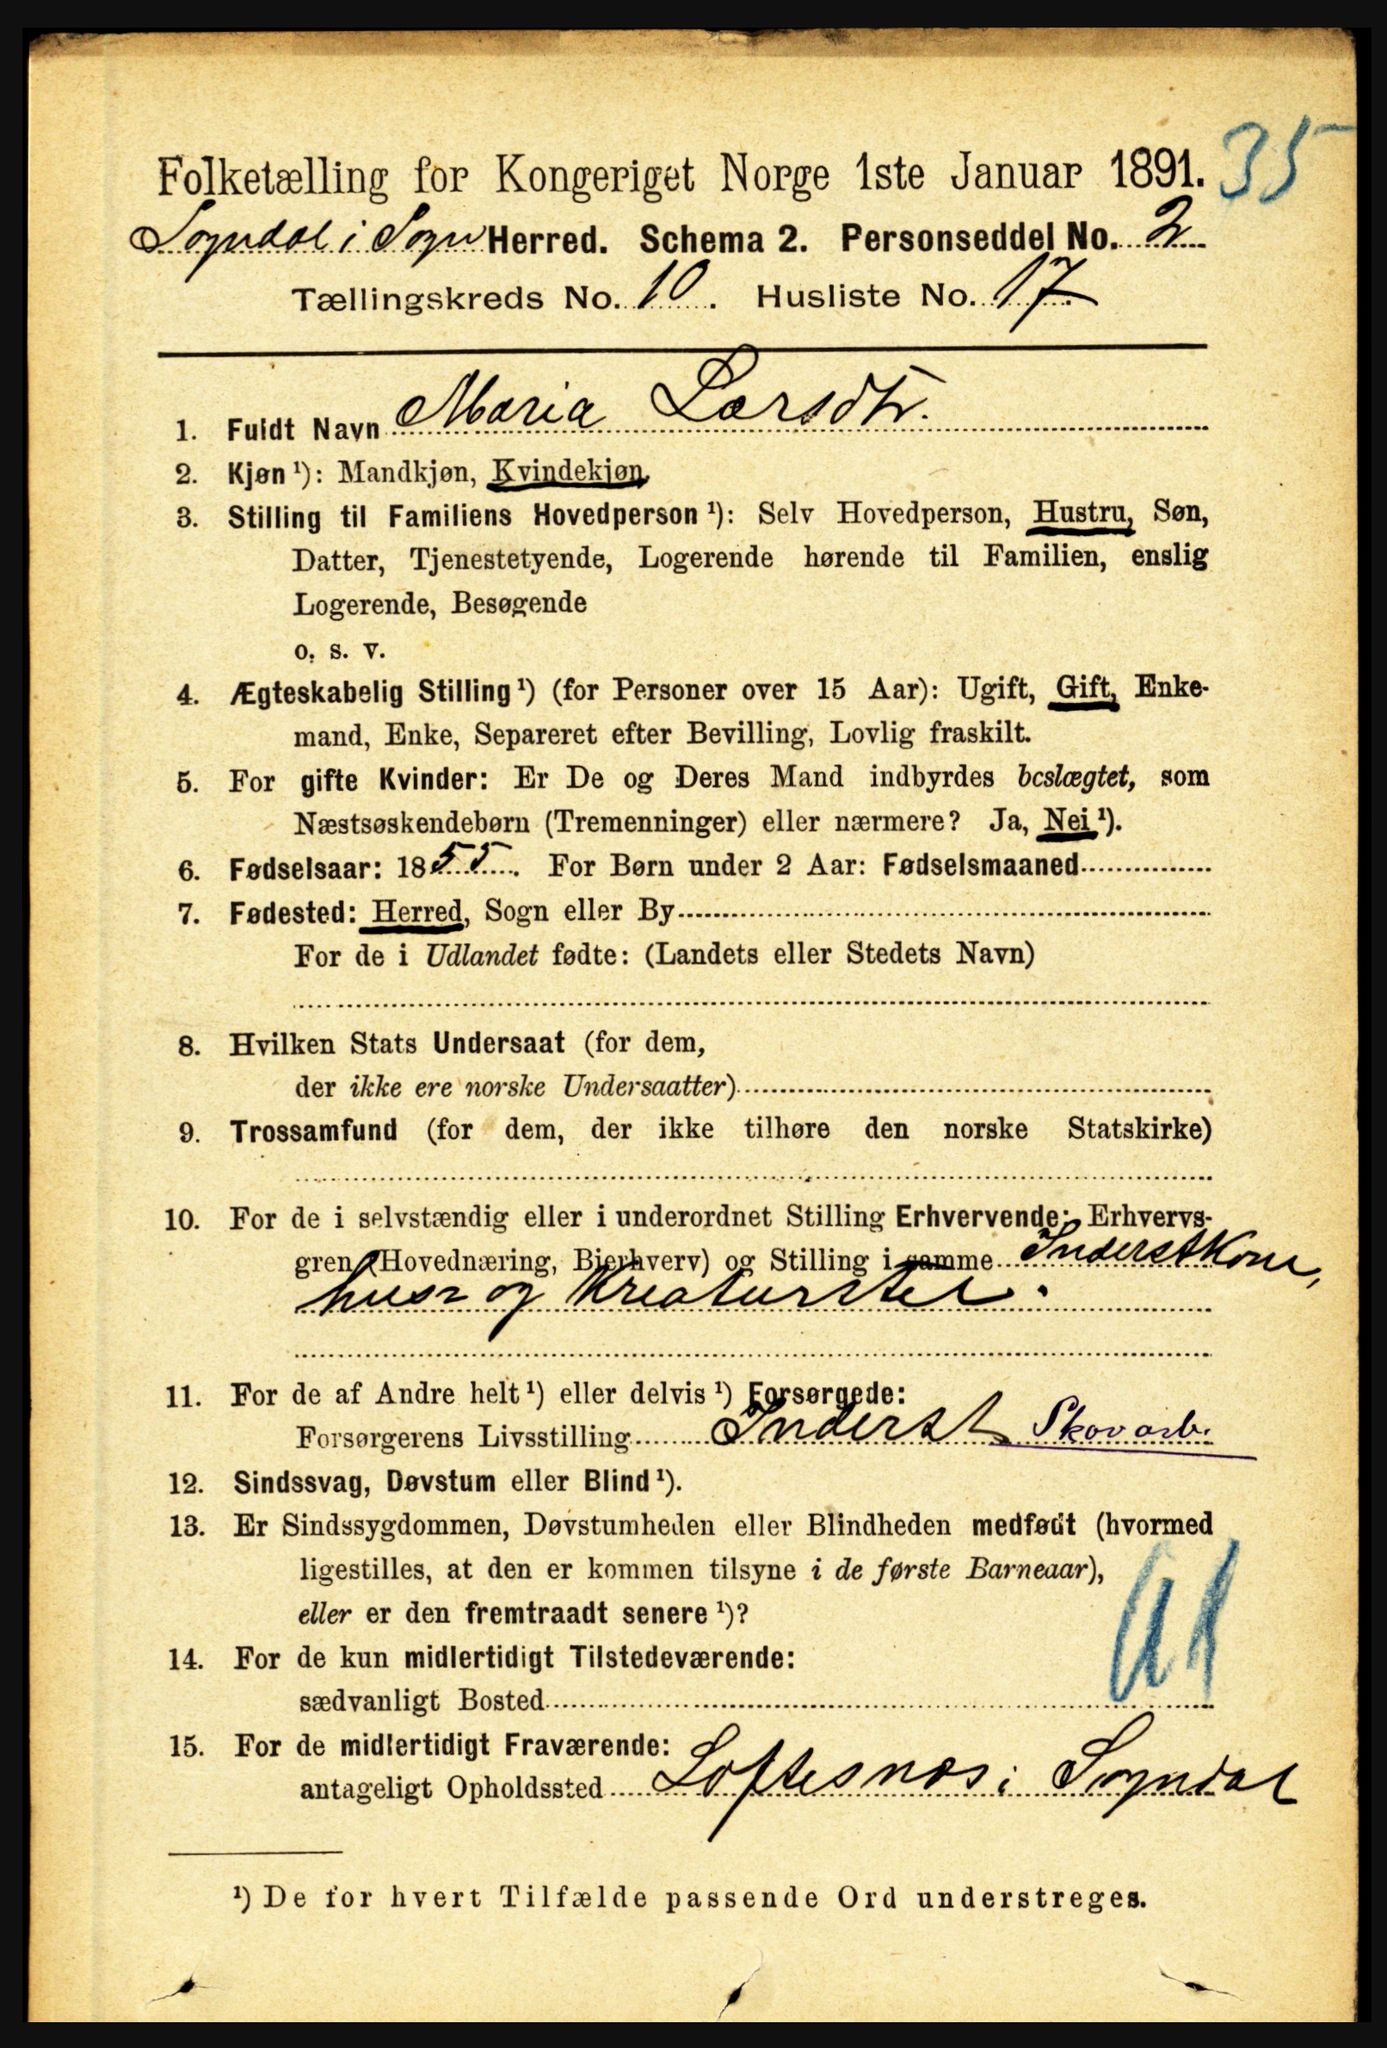 35
Folketælling for Kongeriget Norge 1ste Januar 1891.
Sogndal i Sogn Herred. Schema 2. Personseddel No. 2
Tællingskreds No. 10. Husliste No. 17
1. Fuldt Navn Maria Larsdtr.
2. Kjøn ¹): Mandkjøn, Kvindekjøn.
3. Stilling til Familiens Hovedperson ¹): Selv Hovedperson, Hustru, Søn,
Datter, Tjenestetyende, Logerende hørende til Familien, enslig
Logerende, Besøgende
o. s. v.
4. Ægteskabelig Stilling ¹) (for Personer over 15 Aar): Ugift, Gift, Enke-
mand, Enke, Separeret efter Bevilling, Lovlig fraskilt.
5. For gifte Kvinder: Er De og Deres Mand indbyrdes beslægtet, som
Næstsøskendebørn (Tremenninger) eller nærmere? Ja, Nei ¹).
6. Fødselsaar: 1855. For Børn under 2 Aar: Fødselsmaaned
7. Fødested: Herred, Sogn eller By
For de i Udlandet fødte: (Landets eller Stedets Navn)
8. Hvilken Stats Undersaat (for dem,
der ikke ere norske Undersaatter)
9. Trossamfund (for dem, der ikke tilhøre den norske Statskirke)
10. For de i selvstændig eller i underordnet Stilling Erhvervende: Erhvervs-
gren (Hovednæring, Bierhverv) og Stilling i samme Inderstkone,
hus= og Kreaturstel.
11. For de af Andre helt ¹) eller delvis ¹) Forsørgede:
Forsørgerens Livsstilling Inderst Skovarb.
12. Sindssvag, Døvstum eller Blind ¹).
13. Er Sindssygdommen, Døvstumheden eller Blindheden medfødt (hvormed
ligestilles, at den er kommen tilsyne i de første Barneaar),
eller er den fremtraadt senere ¹)?
14. For de kun midlertidigt Tilstedeværende:
sædvanligt Bosted
15. For de midlertidigt Fraværende:
antageligt Opholdssted Loftesnæs i Sogndal
¹) De for hvert Tilfælde passende Ord understreges.